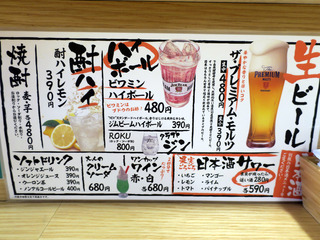 生ビール
ザ・プレミアム・モルツ
PREMIUM
ハイボール
ビワミン
ハイボール
480円
ジムビームハイボール 390円
ROKU
800円
クラフト
ジン
酎ハイ
酎ハイレモン
390円
焼酎
麦・芋 各480円
ソフトドリンク
・ジンジャエール 390円
・オレンジジュース 390円
・ウーロン茶 390円
・ノンアルコールビール 400円
大人の
クリーム
ソーダ
680円
ワンカップ
ワイン
赤・白
各680円
日本酒サワー
・いちご
・マンゴー
・レモン
・ライム
・トマト
・パイナップル
各590円